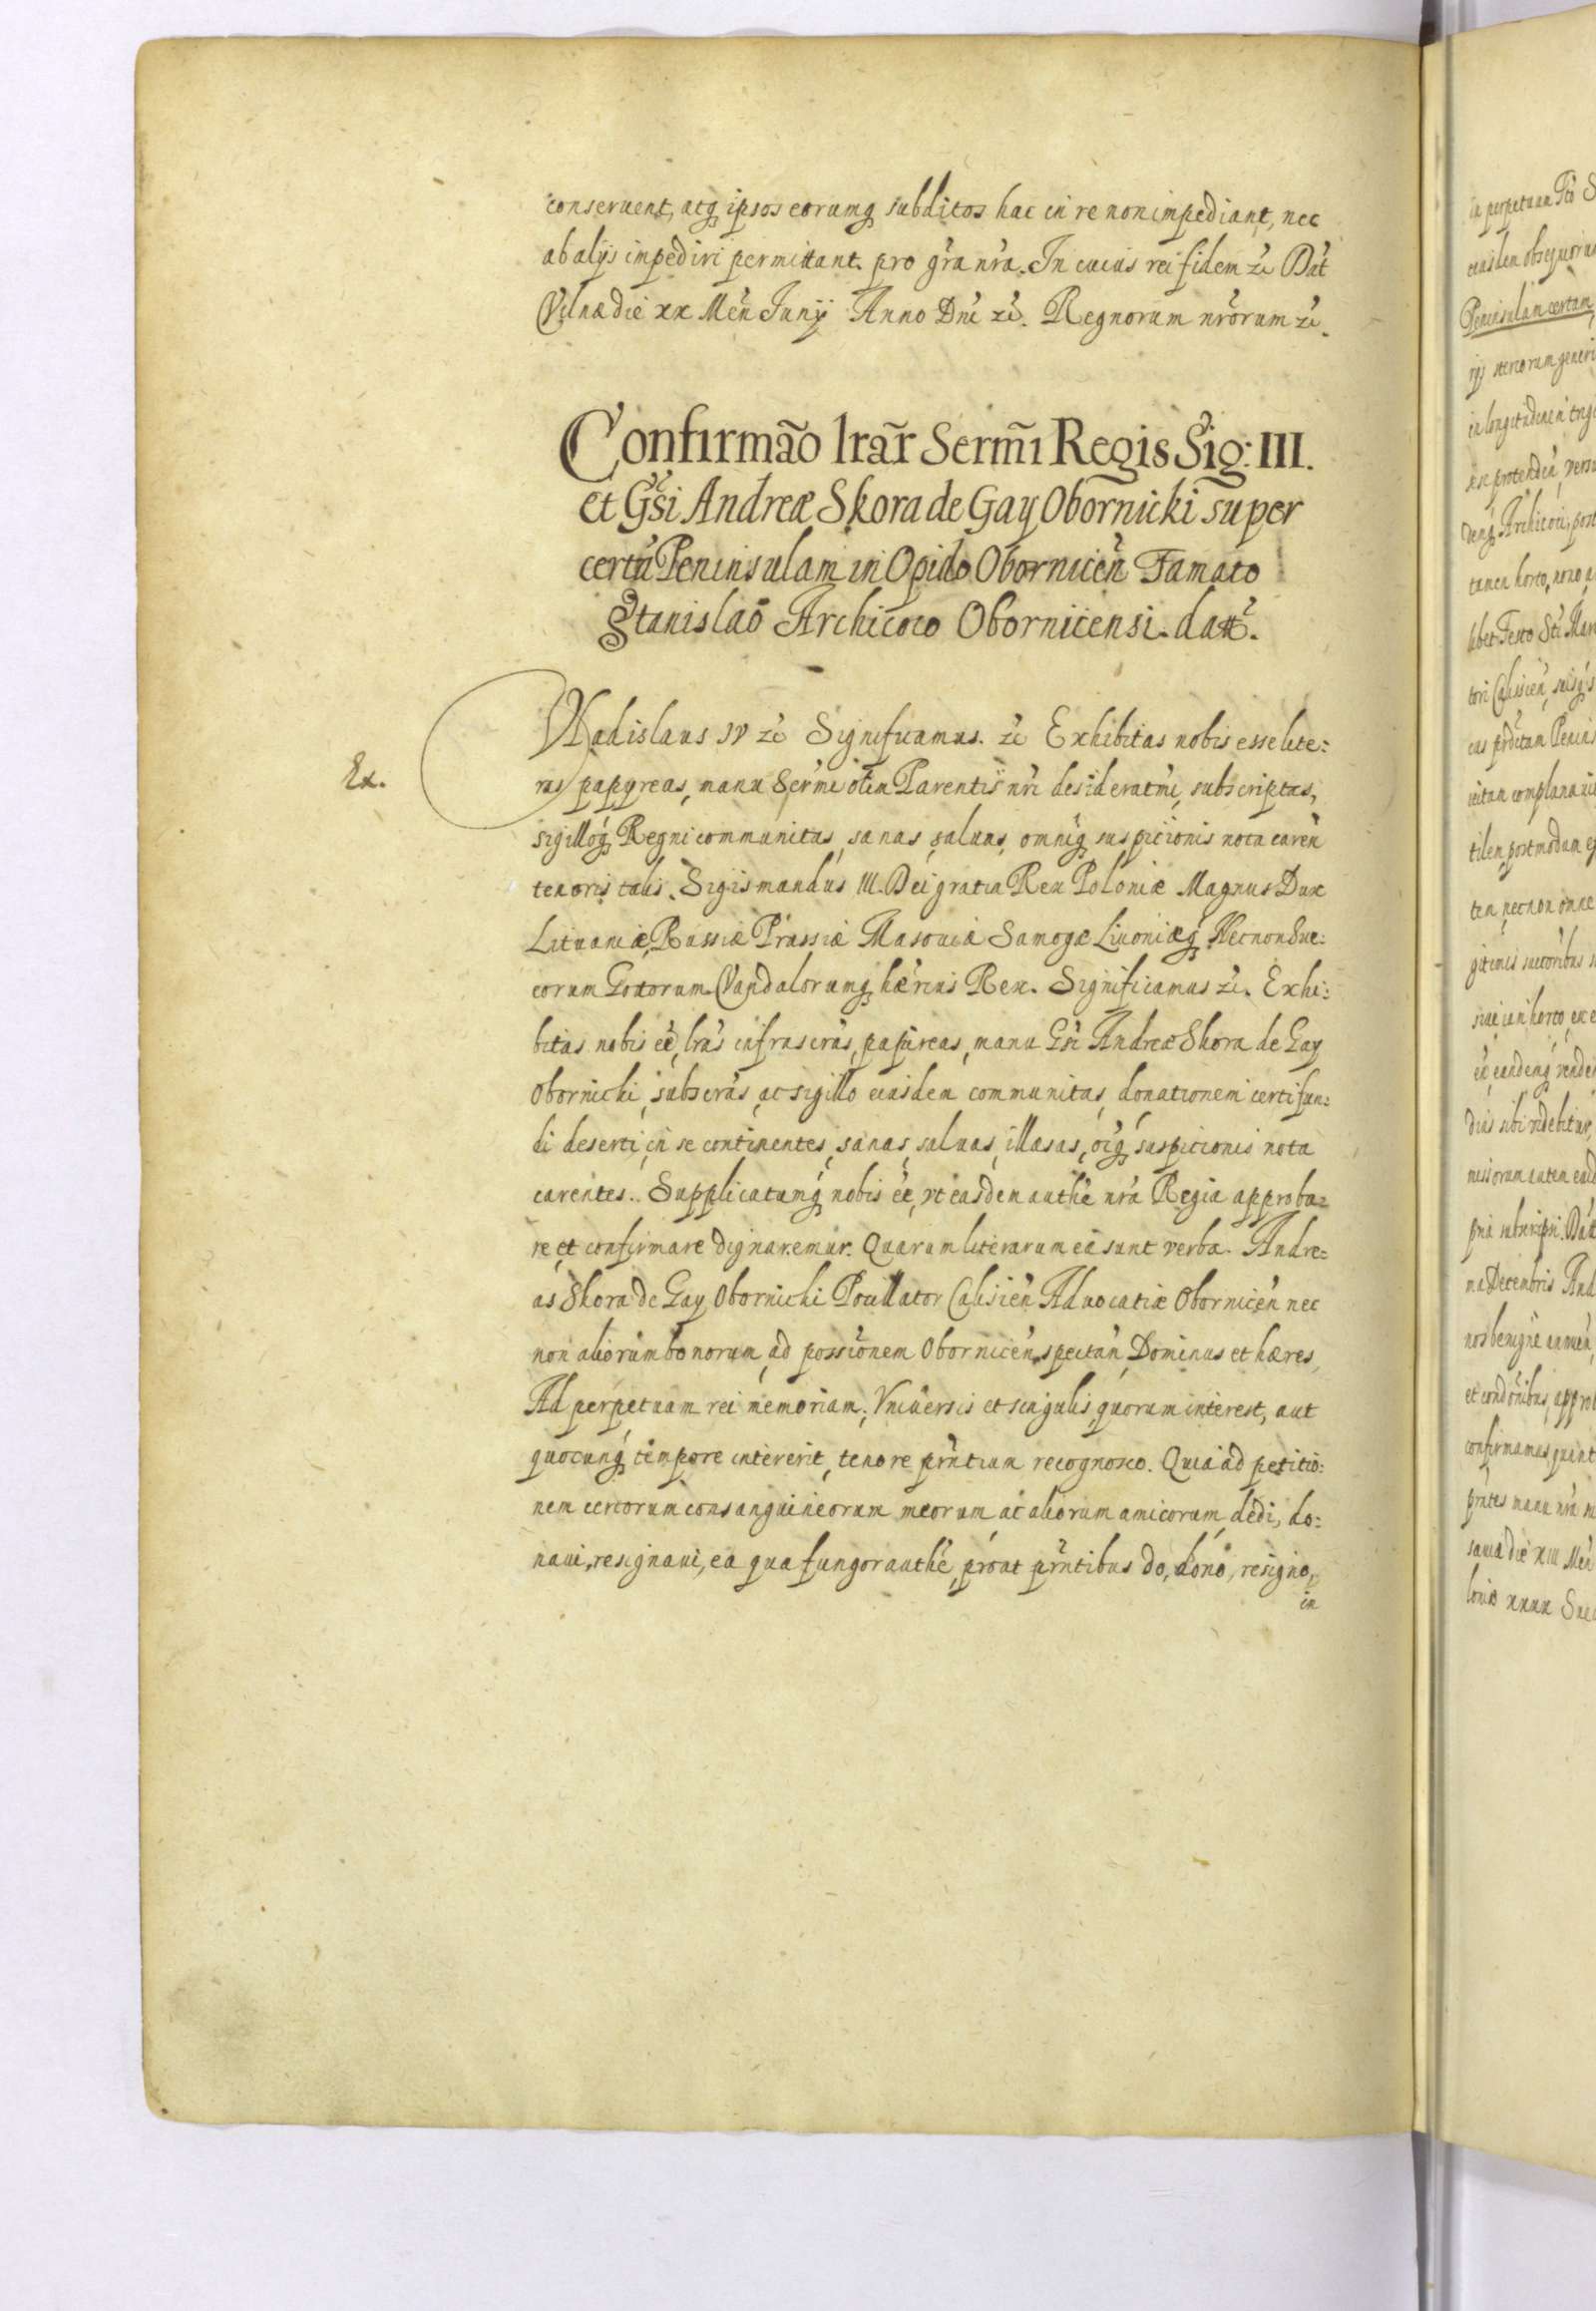 conseruent, atq ipsos eorumq subditos hac in re non impediant, nec
ab alijs impediri permittant. pro gra nra. In cuius rei fidem zc Dat
Vilnæ die xx Men Junij Anno Dni zc. Regnorum nrorum zc.
Confirmão lrar̃ Serm̃i Regis Sig: III.
et Gsi Andreæ Skora de Gay Obornicki super
certũ Peninsulam in Opido Obornicen̄ Famato
Stanislao Archicoco Obornicensi. datt.
Ex.
Vladislaus IV zc Significamus. zc Exhibitas nobis esse lite:
ras papyreas, manu Sermi olim Parentis nri desideratmi, subscriptas,
sigilloq Regni communitas, sanas, saluas, omniq suspicionis nota caren
tenoris talis. Sigismundus III. Dei gratia Rex Poloniæ Magnus Dux
Lituaniæ, Russiæ Prussiæ Masouiæ Samogæ Liuoniæq Necnon Sue:
corum Gottorum Vandalorumq hærius Rex. Significamus zc. Exhi:
bitas nobis eē, lras infrascras, papireas, manu Gsi Andreæ Skora de Gay
Obornicki, subscras, ac sigillo eiusdem communitas, donationem certi fun:
di deserti, in se continentes, sanas, saluas, illæsas, oiq suspicionis nota
carentes. Supplicatumq nobis eē, vt easdem authe nra Regia approba:
re et confirmare dignaremur. Quarum literarum ea sunt verba. Andre:
as Skora de Gay Obornicki Pocillator Calisien Aduocatiæ Obornicen nec
non aliorum bonorum, ad possionem Obornicen spectan, Dominus et hæres,
Ad perpetuam rei memoriam. Vniuersis et singulis, quorum interest, aut
quocunq tempore intererit, tenore prntium recognosco. Quia ad petitio:
nem certorum consanguineorum meorum ac aliorum amicorum, dedi, do:
naui, resignaui, ea qua fungor authe, prout prntibus do, dono, resigno,
in
in perpetuum
eiusdem obsequiorum
Peninsulam certam
in longitudinem
tilem postmodum